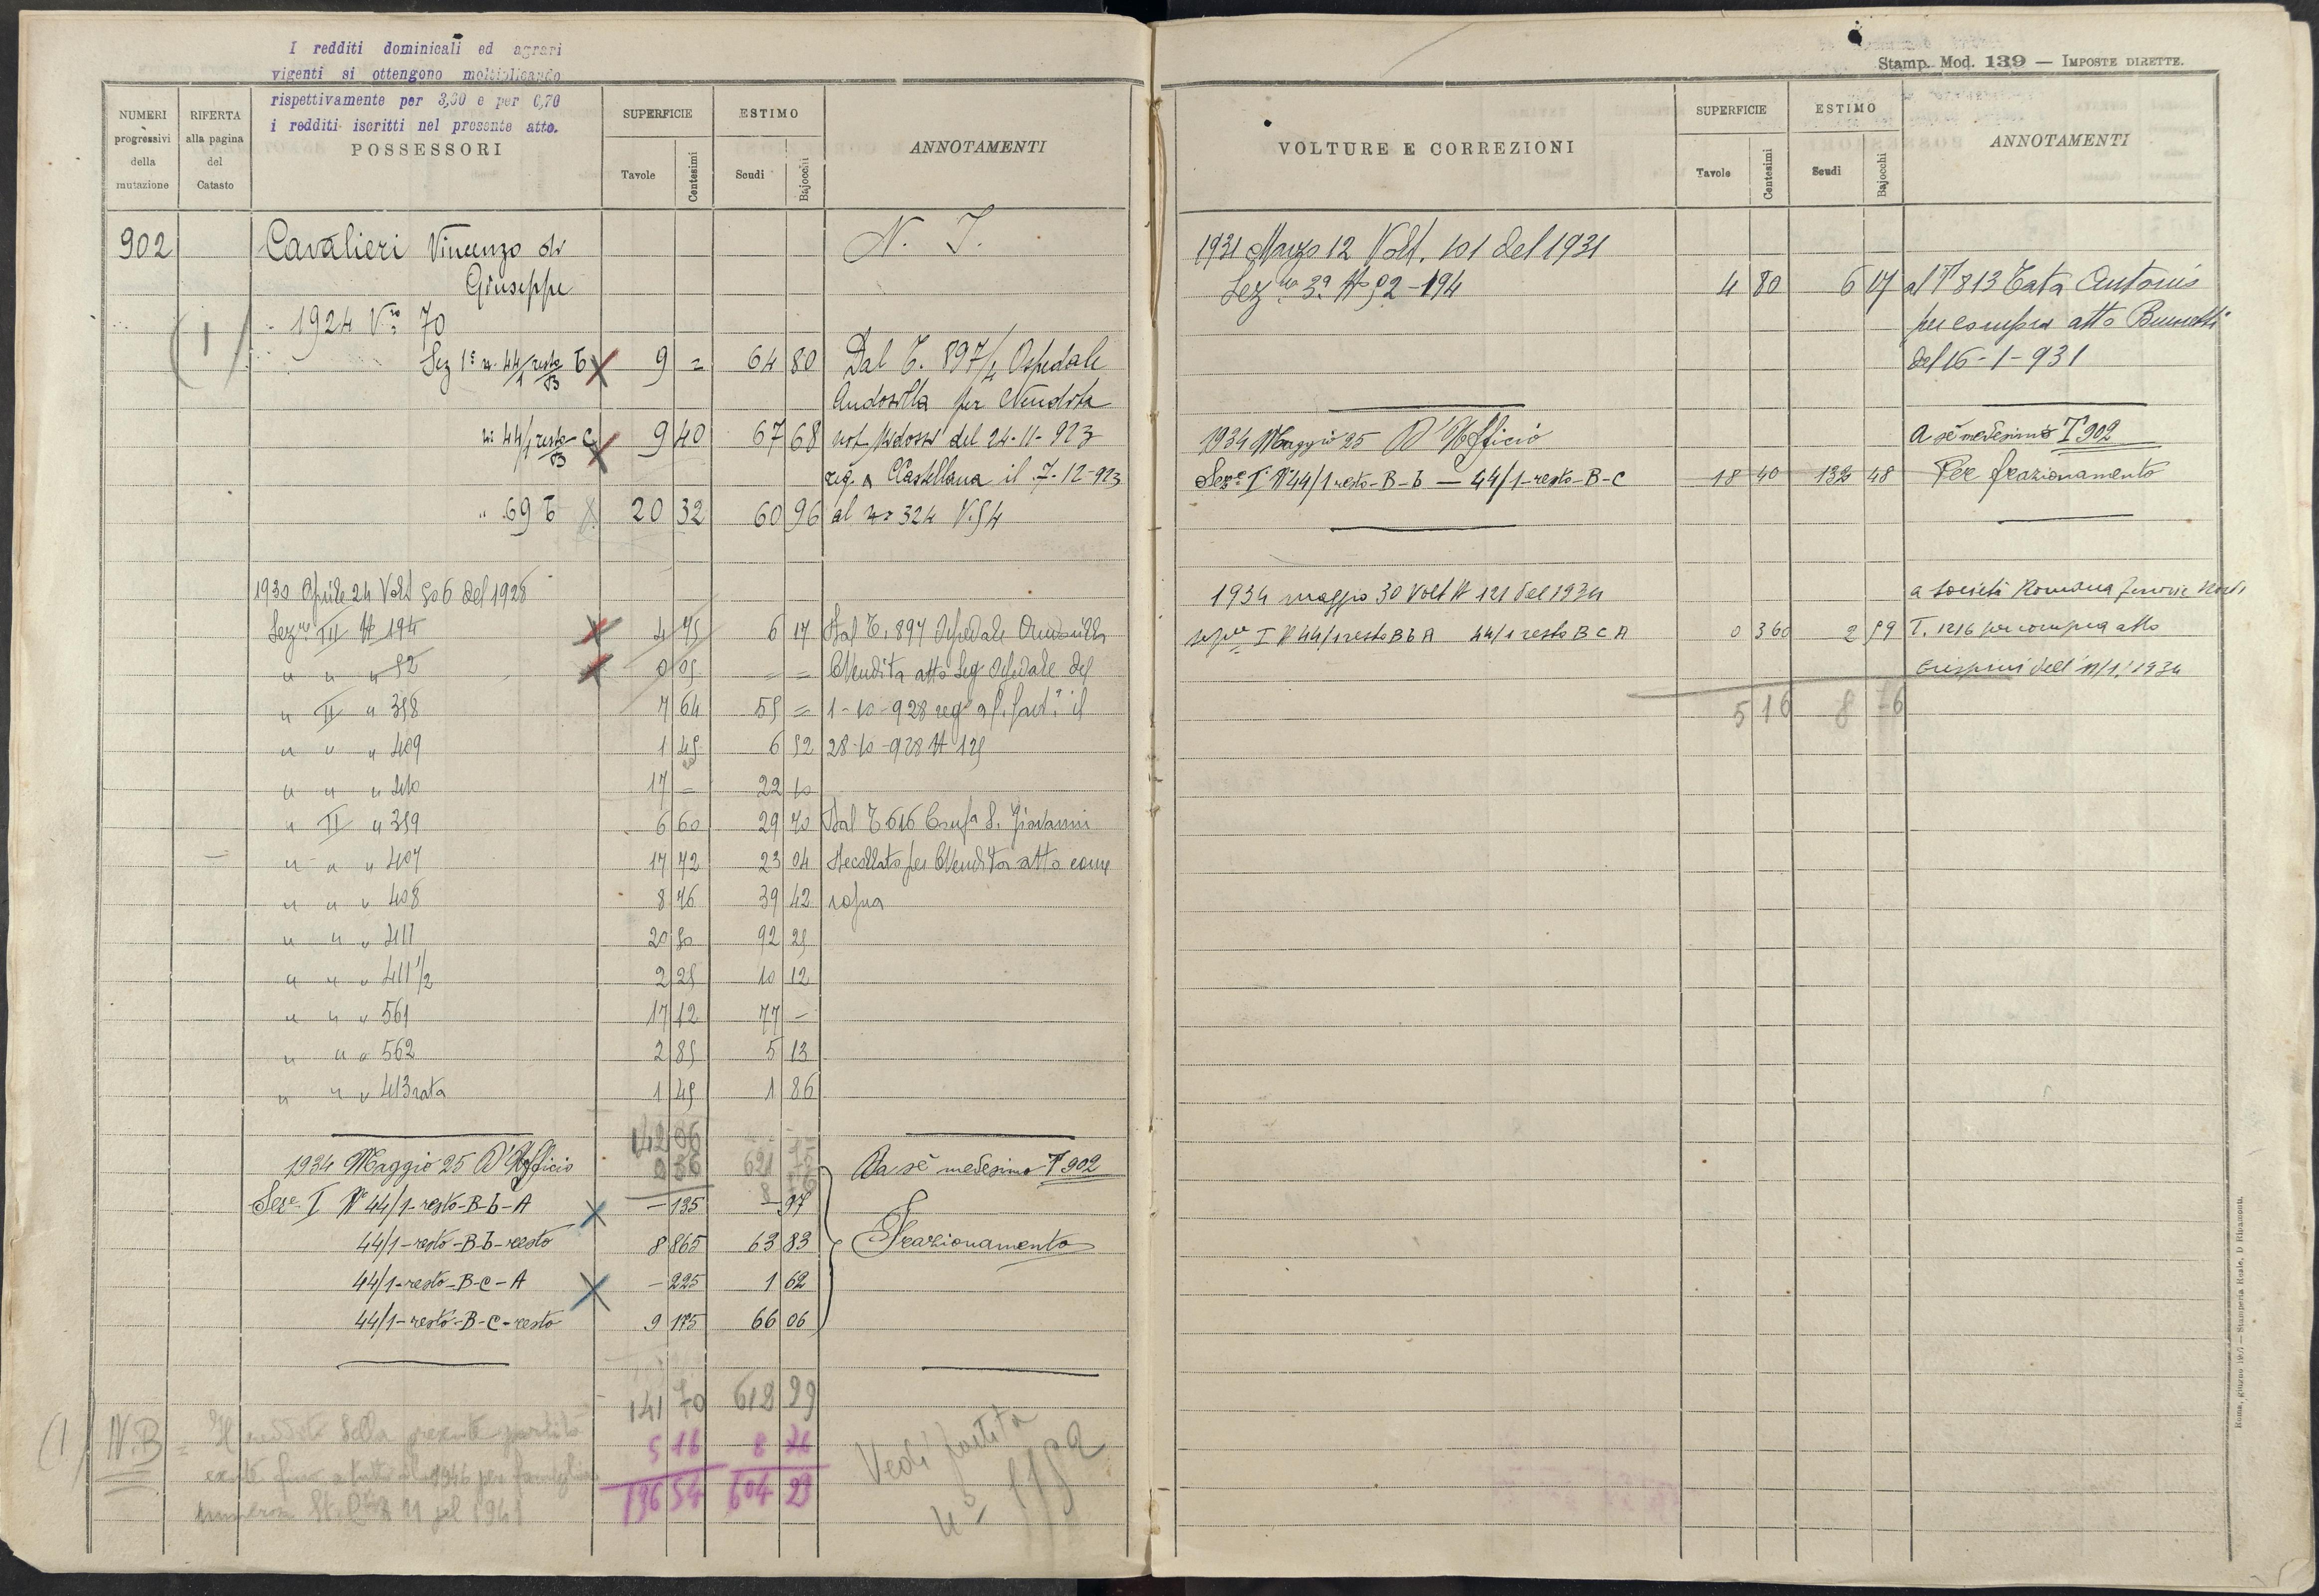 I redditi dominicali ed agrari
vigenti si ottengono moltiplicando
rispettivamente per 3,60 e per 0,70
i redditi iscritti nel presente atto.
NUMERI progressivi della mutazione
RIFERTA alla pagina del Catasto
POSSESSORI
SUPERFICIE
Tavole Centesimi
ESTIMO
Scudi Bajocchi
ANNOTAMENTI
902 Cavalieri Vincenzo di N. I.
Giuseppe
(1) 1924 V.ra 70
Sez 1ª n. 44/1 resto B b 9 = 64 80 Dal T. 897/1 Ospedale
Andosilla per Vendita
n: 44/1 resto B c 9 40 67 68 not. del 24-11-923
reg. a C Castellana il 7-12-923
" 69 b 20 32 60 96 al n° 324 V. 54
1930 Aprile 24 Volt 506 del 1928
Sez.ne III N 194 4 75 6 17 Dal T. 897 Ospedale Andosilla
" " " 52 0 05 = = Vendita atto Seg Ospedale del
" II " 358 7 64 55 = 1-10-928 reg° a il
" " " 409 1 45 6 52 28-10-928 N 125
" " " 410 17 = 22 10
" II " 359 6 60 29 70 Dal T 616 Conf.a S. Giovanni
" " " 407 17 72 23 04 Decollato per Vendita atto come
" " " 408 8 76 39 42 sopra
" " " 411 20 50 92 25
" " " 411 1/2 2 25 10 12
" " " 561 17 12 77 –
" " " 562 2 85 5 13
" " " 413 rata 1 45 1 86
142 06
1934 Maggio 25 D'Ufficio 0 36 621 15 Da sé medesimo T 902
8 76
Sez.e I N° 44/1-resto-B-b-A – 135 – 97
44/1-resto-B-b-resto 8 865 63 83 Frazionamento
44/1-resto-B-C-A – 225 1 62
44/1-resto-B-C-resto 9 175 66 06
141 70 612 29
(1) N.B = Il reddito della presente partita
5 16 8 76
esente fino a tutto il 1946 per famiglia
136 54 604 23
numerosa 11 del 1941
Vedi partita
n°
Stamp. Mod. 139 — IMPOSTE DIRETTE.
VOLTURE E CORREZIONI
SUPERFICIE
Tavole Centesimi
ESTIMO
Scudi Bajocchi
ANNOTAMENTI
1931 Marzo 12 Volt. 101 del 1931
Sez.ne 3ª N° 52-194 4 80 6 17 al T 813 Tata Antonio
per compra atto
del 16-1-931
1934 Maggio 25 D'Ufficio A sé medesimo T 902
Sez.e I N° 44/1 resto-B-b — 44/1-resto-B-C 18 40 132 48 Per frazionamento
1934 maggio 30 Volt N 121 del 1934 a Società Romana Ferrovie Nord
I N 44/1 resto B b A 44/1 resto B C A 0 360 2 59 T. 1216 per compra atto
dell' 11/1/1934
5 16 8 76
Roma, giugno 1927 — Stamperia Reale, D Ripamonti.